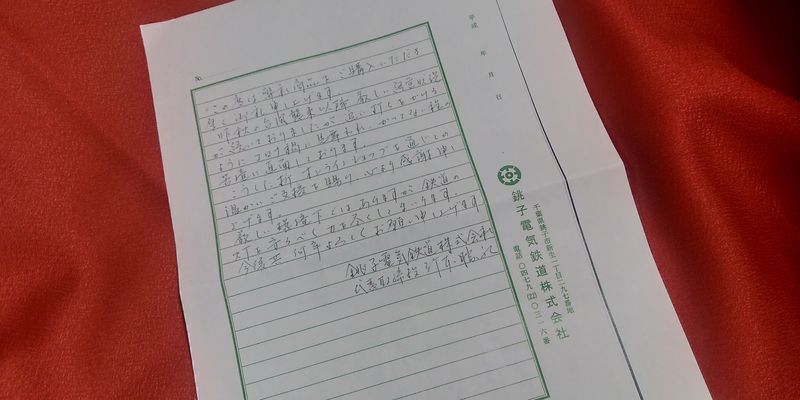 No.
この度は弊社商品をご購入いただき
厚く御礼申し上げます。
昨秋の台風襲来以降、厳しい経営状況
が続いておりましたが、追い打ちをかける
ようにコロナ禍に見舞われ、かつてない程の
苦境に直面しております。
こうした折、オンラインショップを通じての
温かいご支援を賜り、心より感謝申し
上げます。
厳しい環境下ではありますが、鉄道の
灯を守るべく力を尽くしてまいります。
今後共何卒よろしくお願い申し上げます
銚子電気鉄道株式会社
代表取締役
平成 年 月 日
銚子電気鉄道株式会社
千葉県銚子市新生一丁目二九七番地
電話 〇四七九(22)〇三一六番